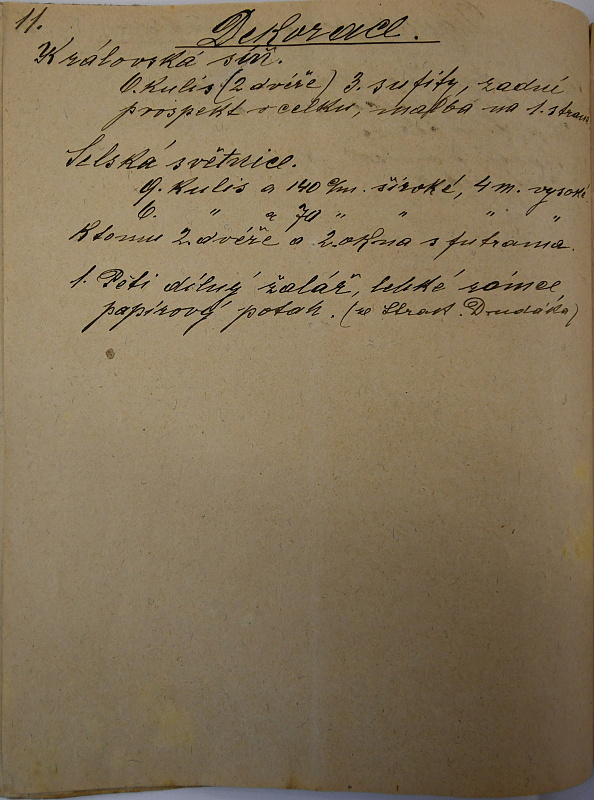 11.
Dekorace.
Královská síň.
6. Kulis (2 dvéře) 3. sufity, zadné
prospekt v celku, malba na 1. stran
Selská světnice.
9. Kulis a 140 c/m. široké, 4 m. vysoké
6. " a 70 " " " "
Ktomu 2. dvéře a 2. okna s futrama.
1. Pěti dílný žalář, lehké rámce
papírový potah. (ze Strak. Dudáka)